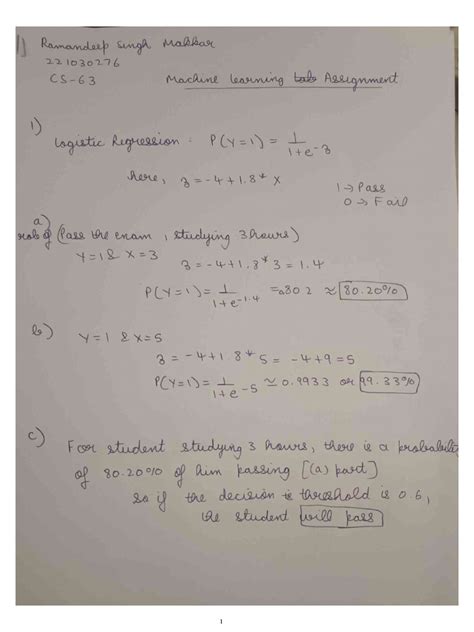 Ramandeep Singh Makkar
221030276
CS-63
Machine Learning Lab Assignment
1)
Logistic Regression : P(Y=1) = 1/1+e^-z
here, z = -4+1.8* x
1 → Pass
0 → Fail
a)
rob of (Pass the exam, studying 3 hours)
Y=1 & X=3
z = -4+1.8*3 = 1.4
P(Y=1) = 1/1+e^-1.4 = 0.802 ≈ 80.20%
b)
Y=1 & X=5
z = -4+1.8*5 = -4+9 = 5
P(Y=1) = 1/1+e^-5 ≃ 0.9933 or 99.33%
c)
For student studying 3 hours, there is a probability
of 80.20% of him passing [(a) part]
so if the decision threshold is 0.6,
the student will pass
1